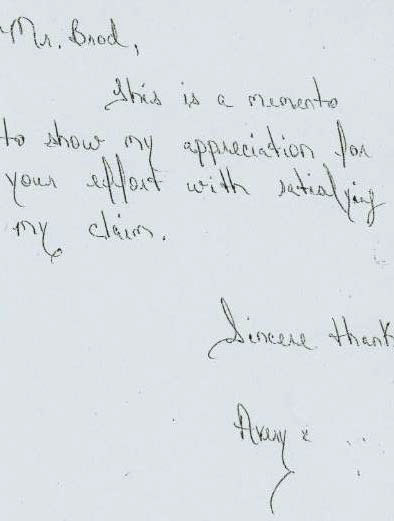 Mr. Brod,
This is a memento
to show my appreciation for
your effort with satisfying
my claim.
Sincere thank
Avery &